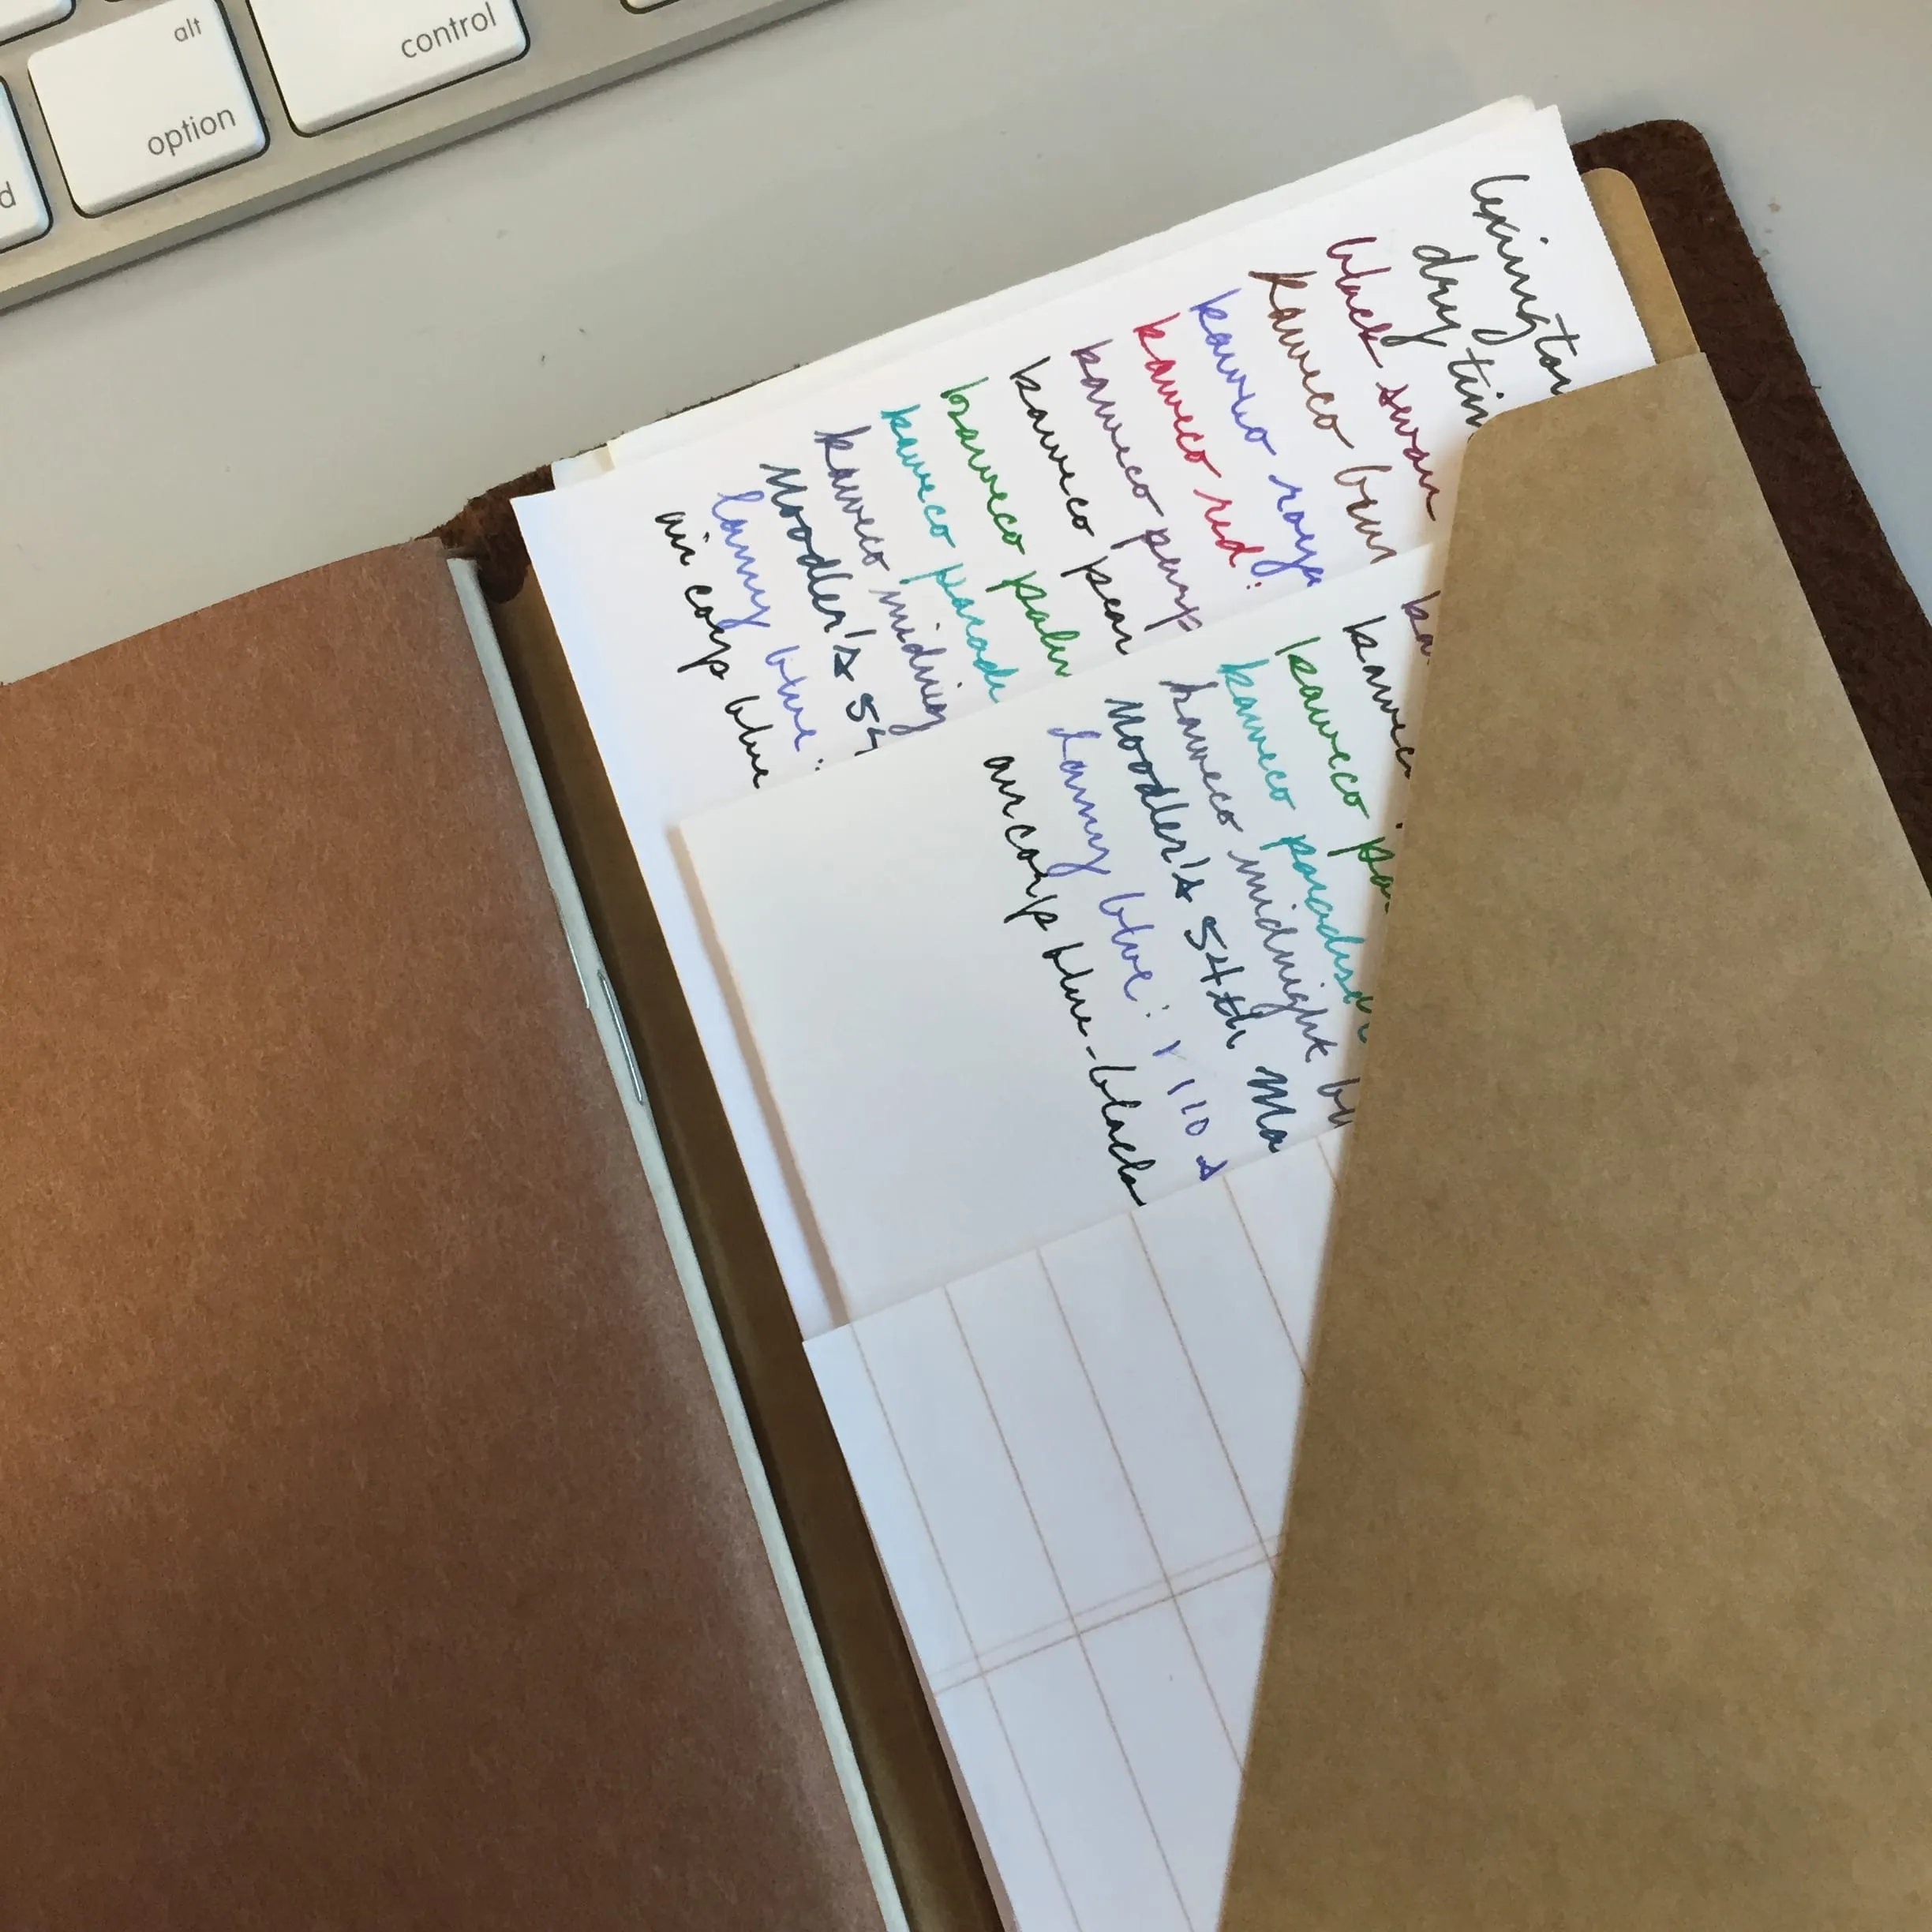 alt
option
control
d
Lexington
dry tim
black swan
kaweco brun
kaweco roya
kaweco red:
kaweco purp
kaweco pear
kaweco palm
kaweco paradi
kaweco midnig
Noodler's 54
lamy blue:
air corp blue
ka
kaweco
kaweco pa
kaweco paradise
kaweco midnight bl
Noodler's 54th Ma
Lamy blue: 110 s
air corp blue-black